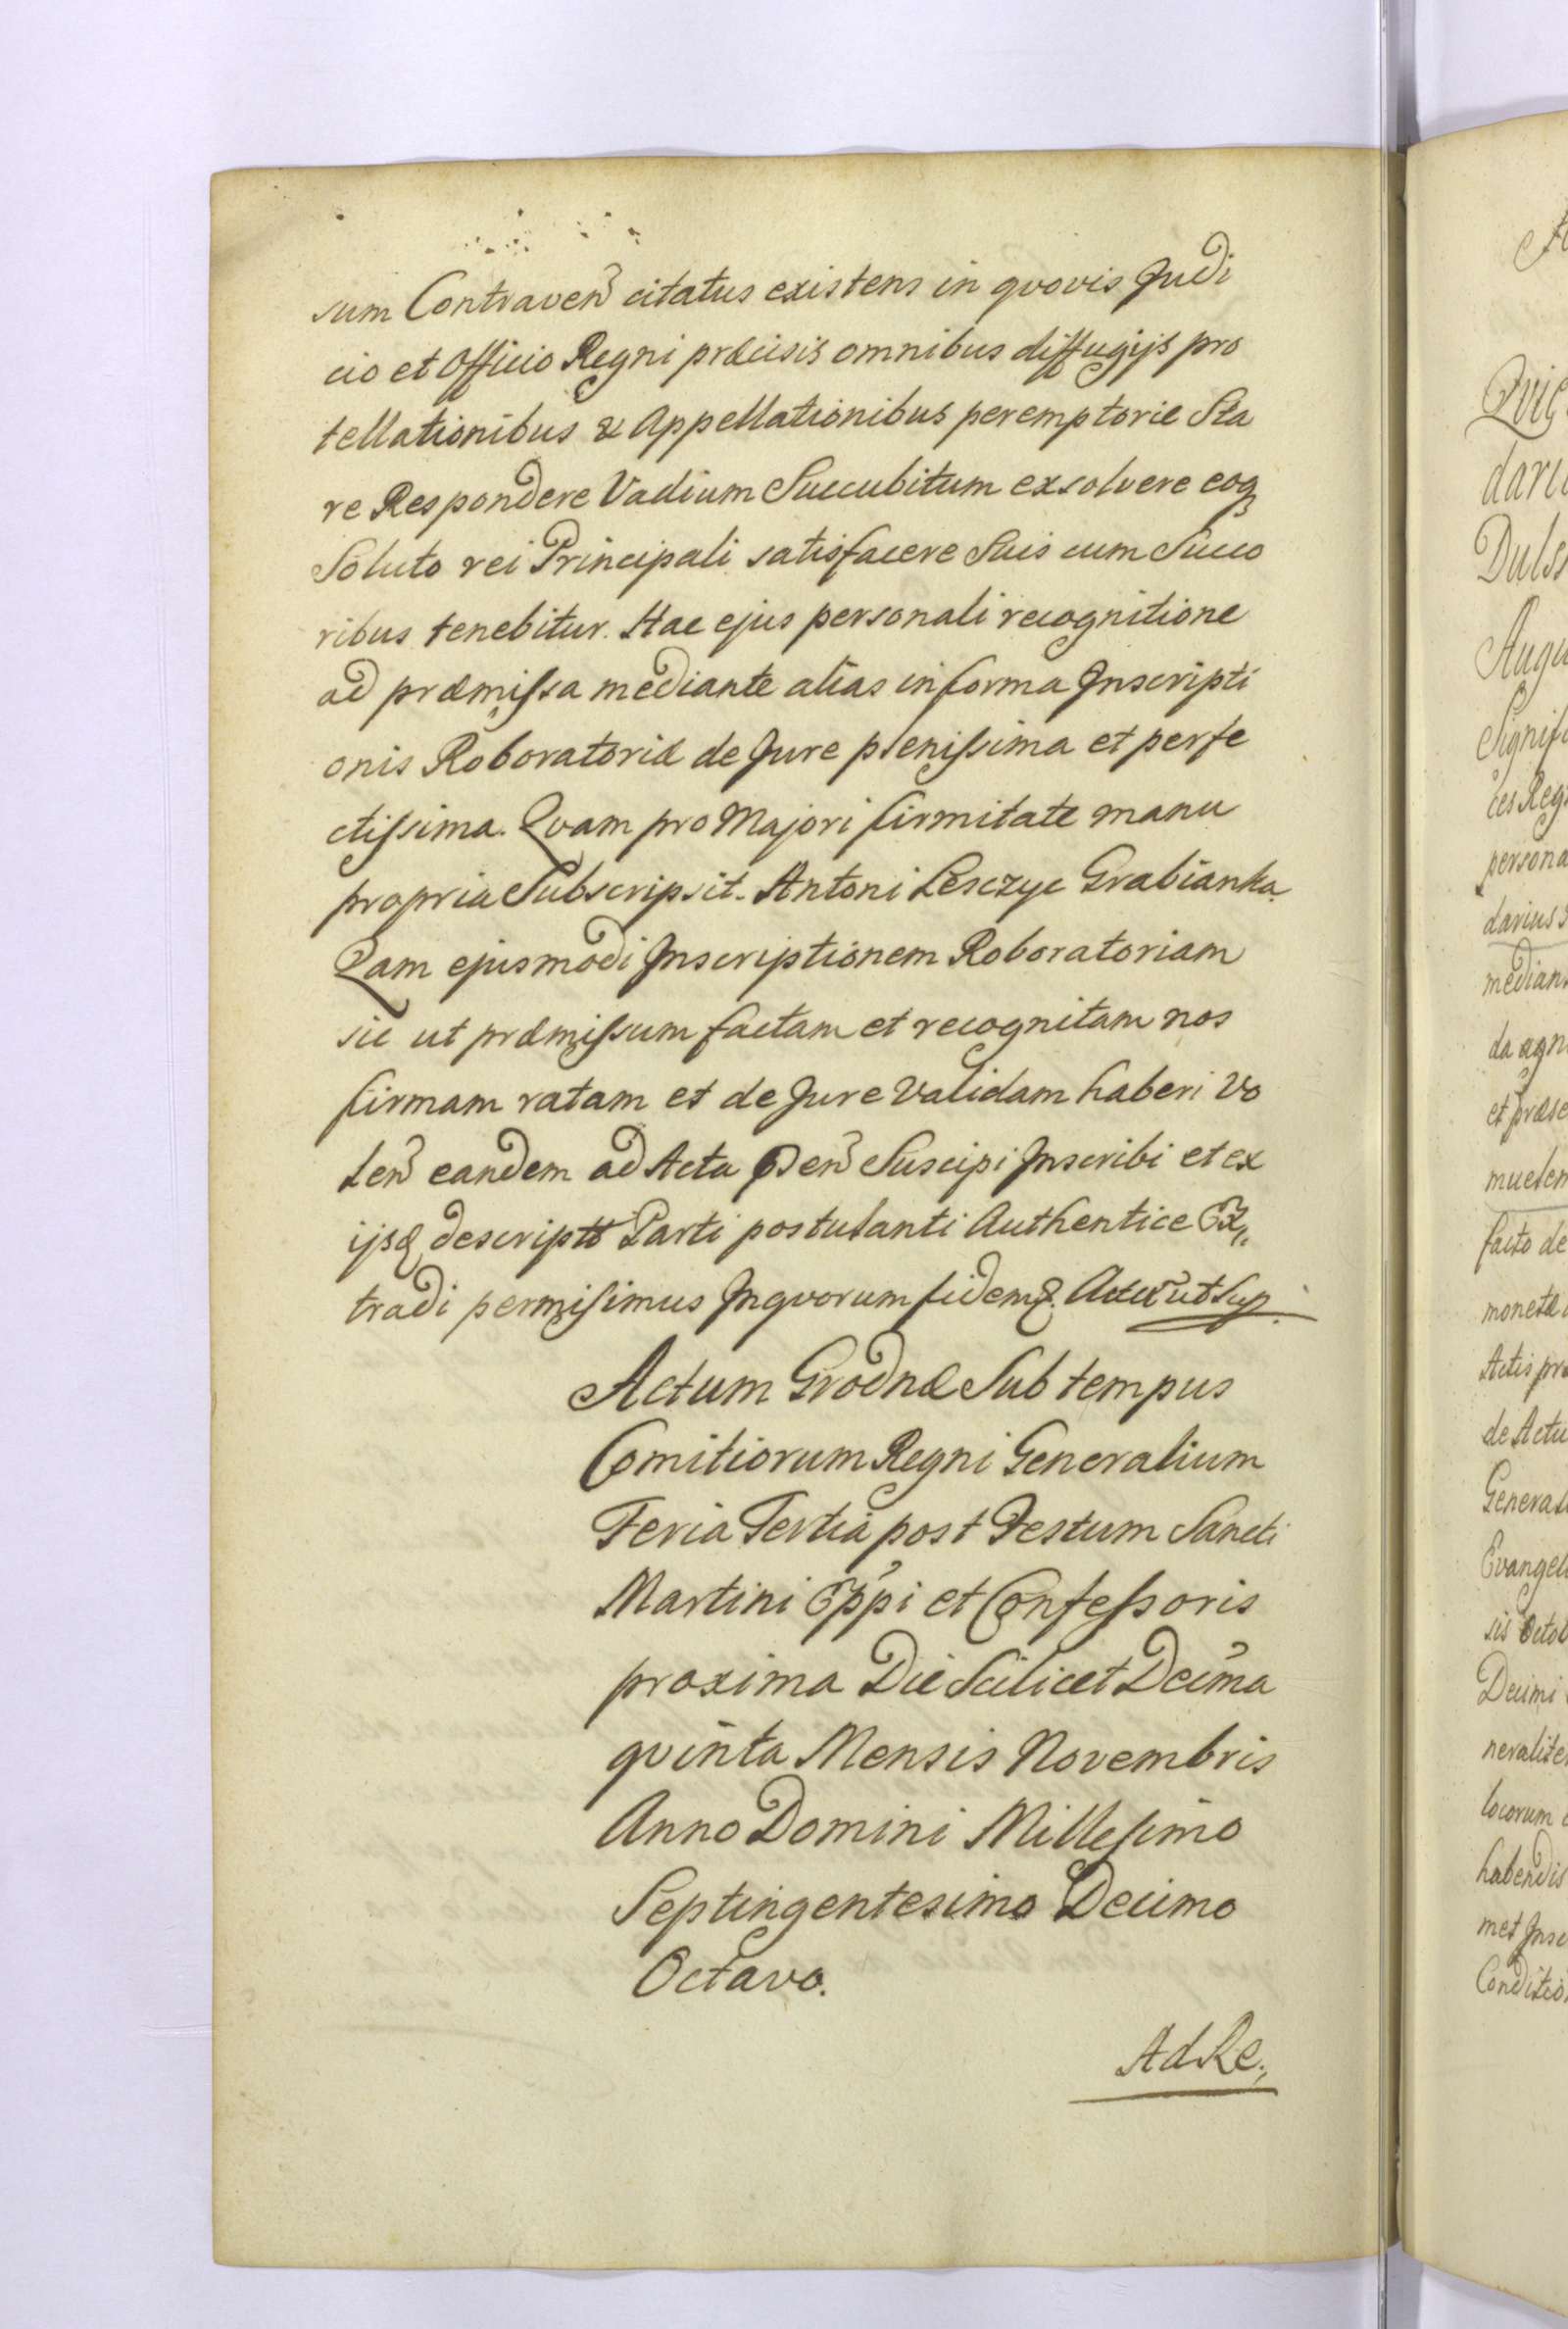 sum Contraven̄ citatus existens in qvovis Judi
cio et Officio Regni præcisis omnibus diffugijs pro
tellationibus & Appellationibus peremptorie Sta
re Respondere Vadium Succubitum exsolvere eoq
Soluto rei Principali satisfacere Suis cum Succo
ribus tenebitur. Hac ejus personali recognitione
ad præmissa mediante alias in forma Inscripti
onis Roboratoriæ de Jure plenissima et perfe
ctissima. Qvam pro Majori firmitate manu
propria Subscripsit. Antoni Lesczyc Grabianka
Qam ejusmodi Inscriptionem Roboratoriam
sic ut præmissum factam et recognitam nos
firmam ratam et de Jure Validam haberi Vo
len̄ eandem ad Acta Pden̄ Suscipi Inscribi et ex
ijsq descriptt Parti postulanti Authentice Ex,,
tradi permisimus Inqvorum fidem. Actū ut Sup
Actum Grodnæ Sub tempus
Comitiorum Regni Generalium
Feria Tertia post Festum Sancti
Martini Eppi et Confessoris
proxima Die Scilicet Decima
qvinta Mensis Novembris
Anno Domini Millesimo
Septingentesimo Decimo
Octavo.
Ad Re,,
Qvi
dari
Dulss
Augu
Signifi
ces Regi
persona
darius
median
da agn
et præse
muelem
facto de
monetæ
Actis pro
de Actu
General
Evangeli
sis Octob
Decimi
neralite
locorum
habendis
met Insc
Condition